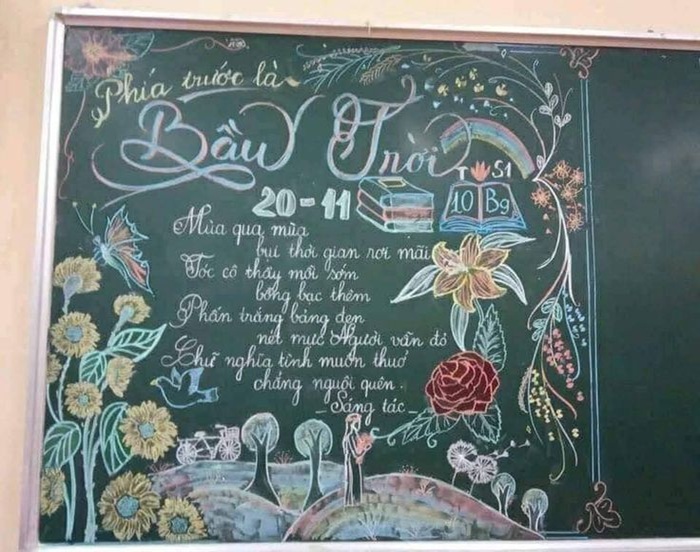 Phía trước là
Bầu Trời
T S1
20-11
10 B9
Mùa qua mùa
bụi thời gian rơi mãi
Tóc cô thầy mỗi sớm
bỗng bạc thêm
Phấn trắng bảng đen
nét mực Người vẫn đó
Chữ nghĩa tình muôn thuở
chẳng nguội quên.
_Sáng tác_